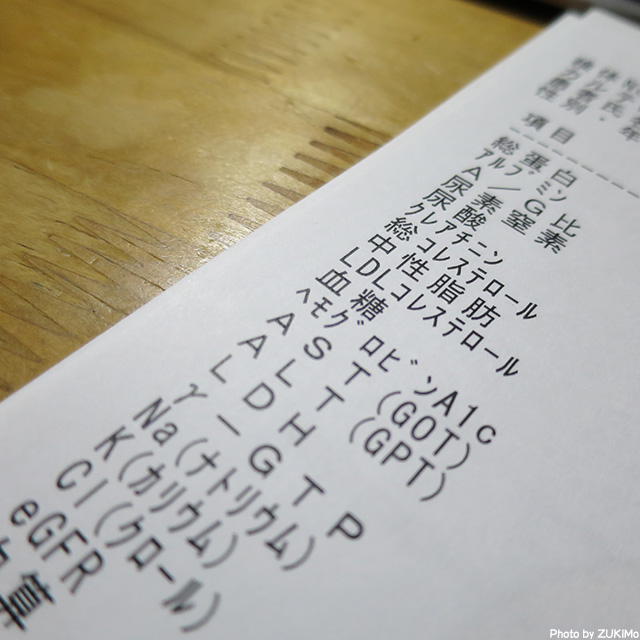 性別
項目
総蛋白
アルブミン
A／G比
尿素窒素
尿酸
クレアチニン
総コレステロール
中性脂肪
LDLコレステロール
血糖
ヘモグロビンA1c
AST(GOT)
ALT(GPT)
LDH
γ－GTP
Na(ナトリウム)
K(カリウム)
Cl(クロール)
eGFR
算
Photo by ZUKIMo